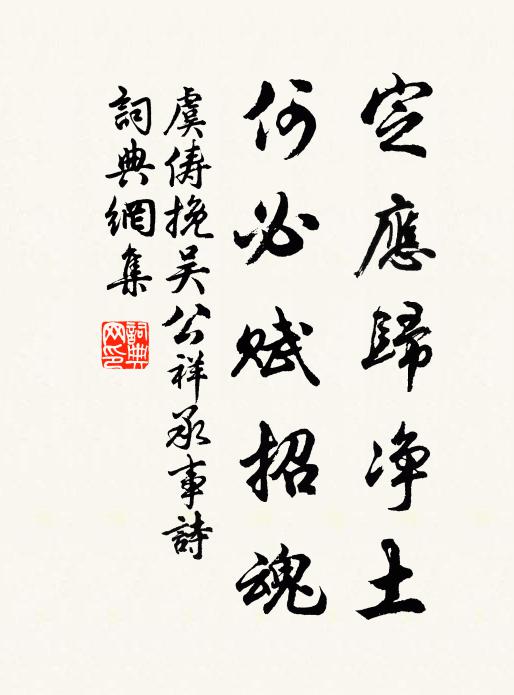 定應歸净土
何必賦招魂
虞儔挽吴公祥承事詩
詞典網集
詞典网印